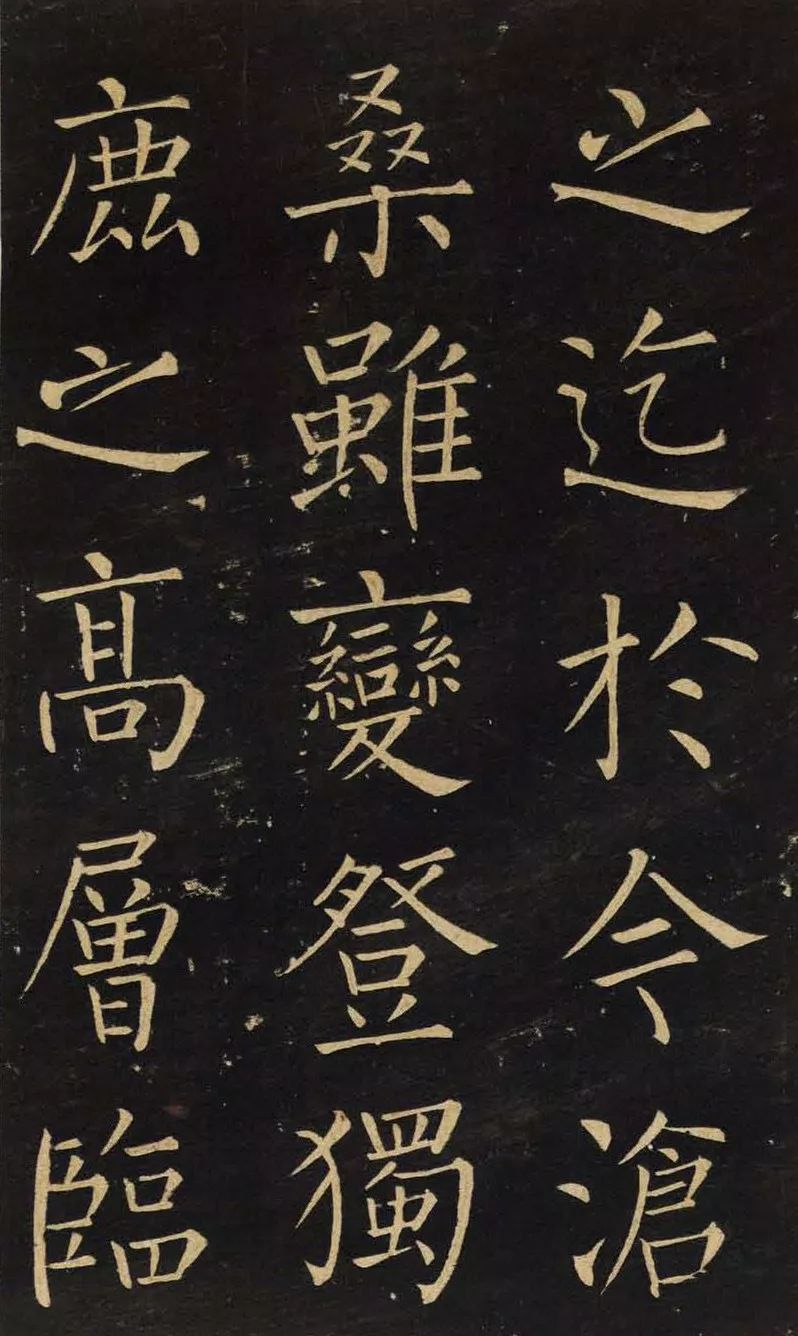 之迄於今滄
桑雖變登獨
鹿之高層臨